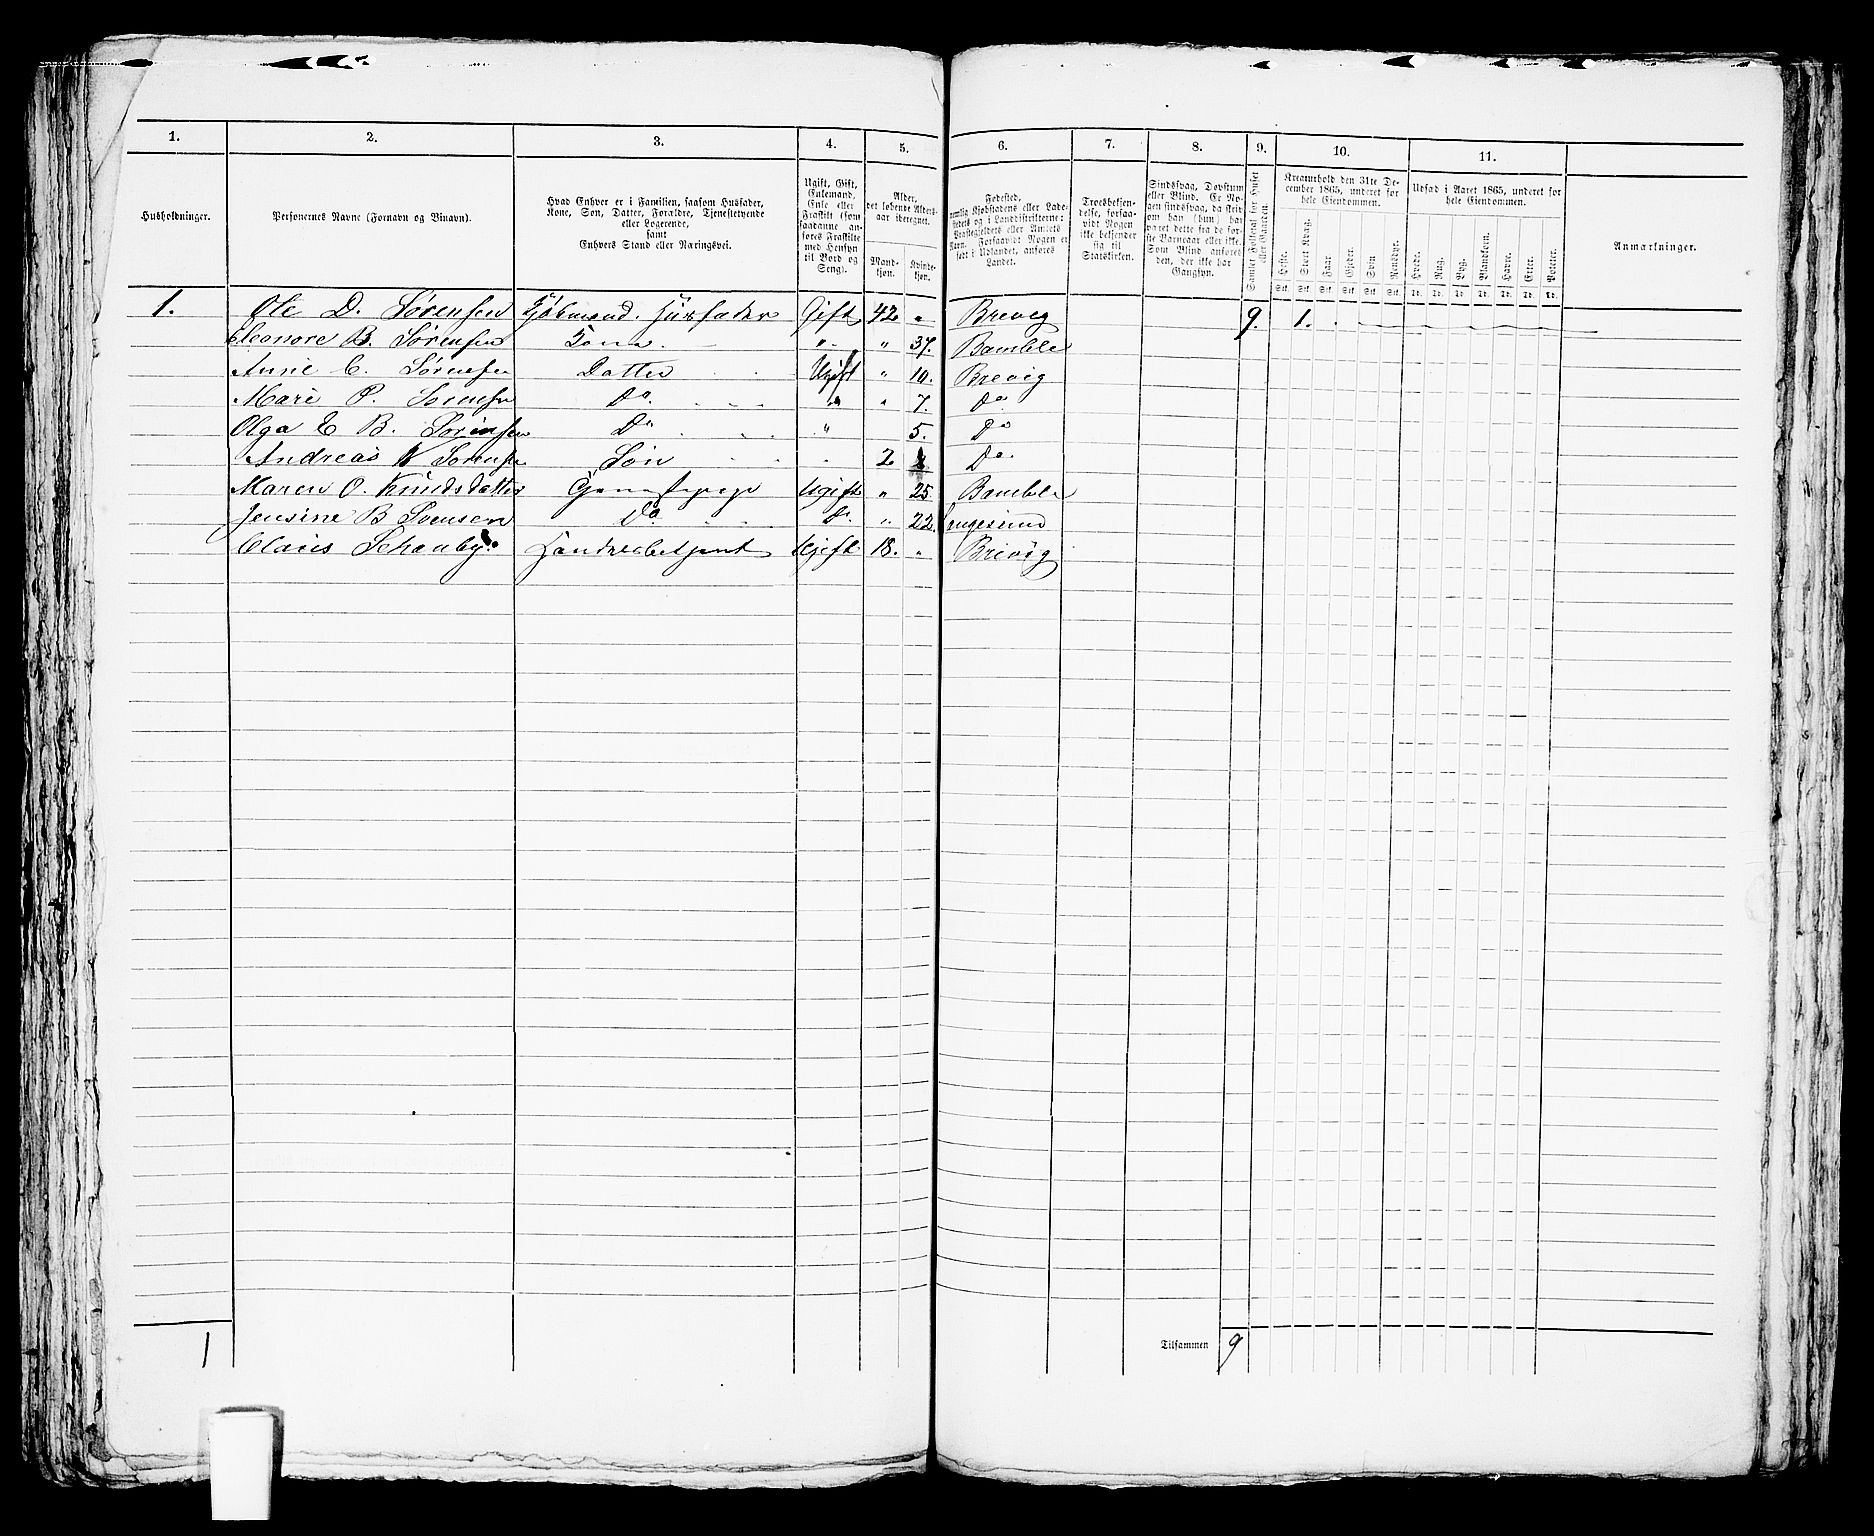 1. 2. 3. 4. 5. 6. 7. 8. 9. 10. 11.
Husholdninger.
Personernes Navne (Fornavn og Binavn).
Hvad Enhver er i Familien, saasom Husfader,
Kone, Søn, Datter, Forældre, Tjenestetyende
eller Logerende,
samt
Enhvers Stand eller Næringsvei.
Ugift, Gift,
Enkemand,
Enke eller
Fraskilt (som
saadanne an-
føres Fraskilte
med Hensyn
til Bord og
Seng).
Alder,
det løbende Alders-
aar iberegnet.
Mand-
kjøn.
Kvinde-
kjøn.
Fødested,
nemlig Kjøbstadens eller Lade-
stedets og i Landdistrikterne:
Præstegjeldets eller Amtets
Navn. Forsaavidt Nogen er
født i Udlandet, anføres
Landet.
Troesbekjen-
delse, forsaa-
vidt Nogen
ikke bekjender
sig til
Statskirken.
Sindssvag, Døvstum
eller Blind. Er No-
gen sindssvag, da skriv
om han (hun) har
været dette fra de før-
ste Barneaar eller ikke.
Som Blind anføres
den, der ikke har
Gangsyn.
Samlet Folketal for Huset
eller Gaarden.
Kreaturhold den 31te De-
cember 1865, underet for
hele Eiendommen.
Heste. Stort Kvæg. Faar. Gjeder. Svin Rensdyr.
Stk. Stk. Stk. Stk. Stk. Stk.
Udsæd i Aaret 1865, underet for
hele Eiendommen.
Hvede. Rug. Byg. Blandkorn. Havre. Erter. Poteter.
Td. Td. Td. Td. Td. Td. Td.
Anmærkninger.
1. Ole D. Sørensen Kjøbmand. Husfader Gift 42 " Brevig 9. 1.
Eleonore B. Sørensen Kone. " " 37. Bamble
Anne C. Sørensen Datter Ugift " 10. Brevig
Mare P. Sørensen Do. " " 7. Do
Olga E B. Sørensen Do " 5. Do
Andreas K Sørensen Søn 2 Do.
Maren O. Knudsdatter Tjenestepige Ugift " 25. Bamble
Jensine B Svensen Do Do. " 22. Langesund
Claus Schanby. Handelsbetjent Ugift 18. " Brevig
1 Tilsammen 9